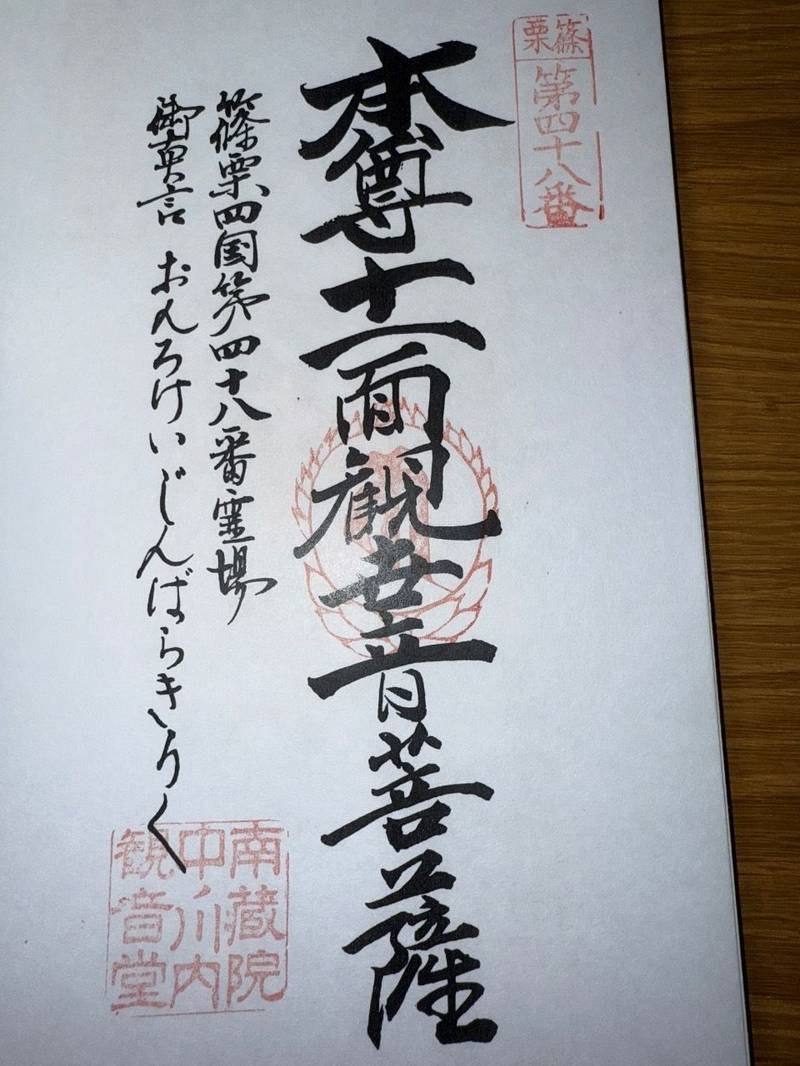 篠栗
第四十八番
本尊十一面観世音菩薩
篠栗四国第四十八番霊場
御真言 おんろけいじんばらきりく
南蔵院
中川内
観音堂